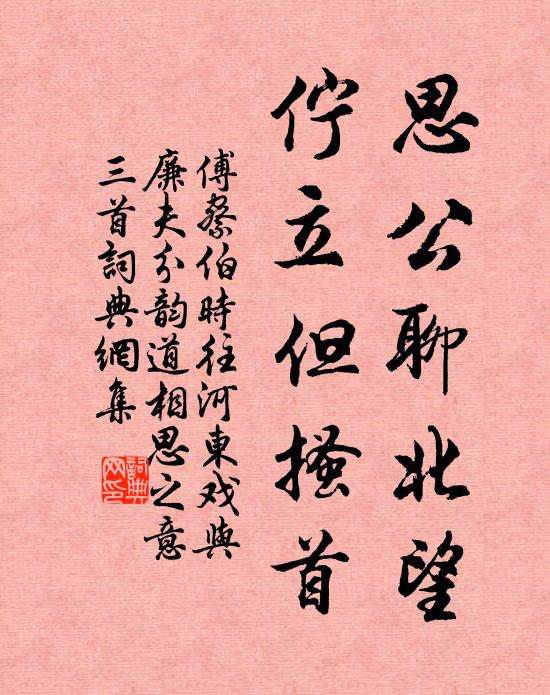 思公聊北望
佇立但搔首
傅蔡伯時往河東戏與
廉夫分韵道相思之意
三首詞典網集
詞典
网印